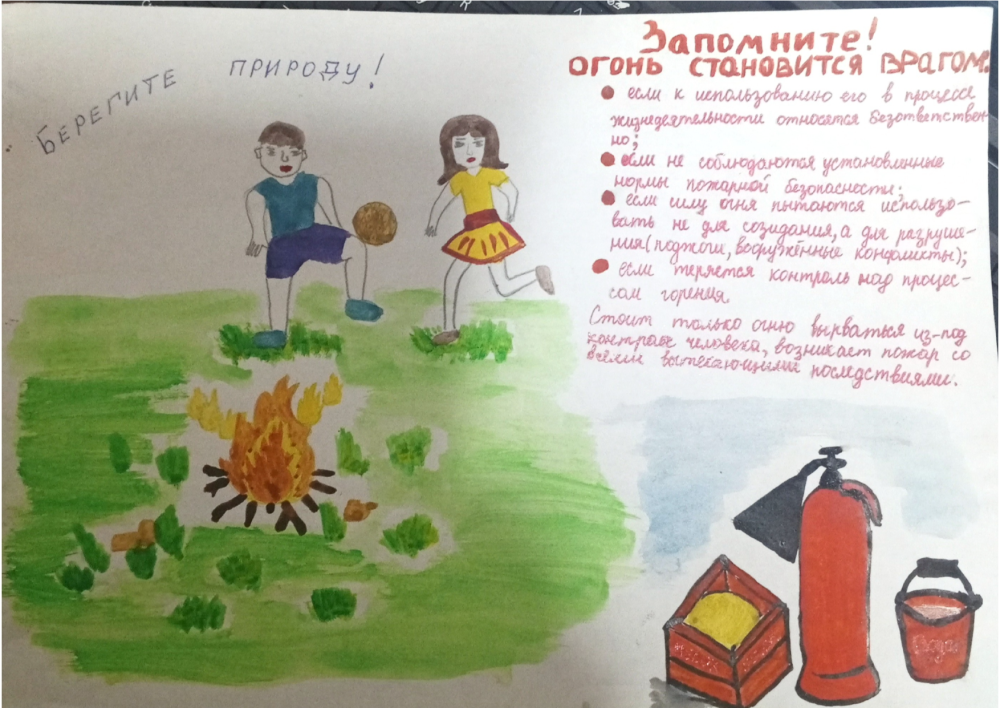 БЕРЕГИТЕ ПРИРОДУ!
Запомните!
огонь становится врагом:
если к использованию его в процессе
жизнедеятельности относятся безответствен-
но;
если не соблюдаются установленные
нормы пожарной безопасности;
если силу огня пытаются использо-
вать не для созидания, а для разруше-
ния (поджоги, вооружённые конфликты);
если теряется контроль над процес-
сом горения.
Стоит только огню вырваться из-под
человека, возникает пожар со
всеми вытекающими последствиями.